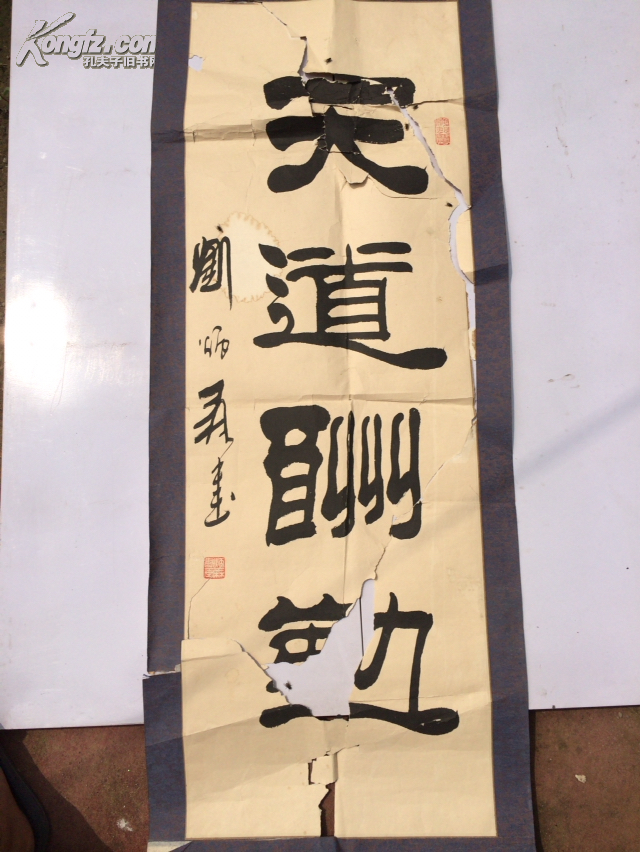 天道酬勤
劉炳森書
Kongfz.com
孔夫子旧书网